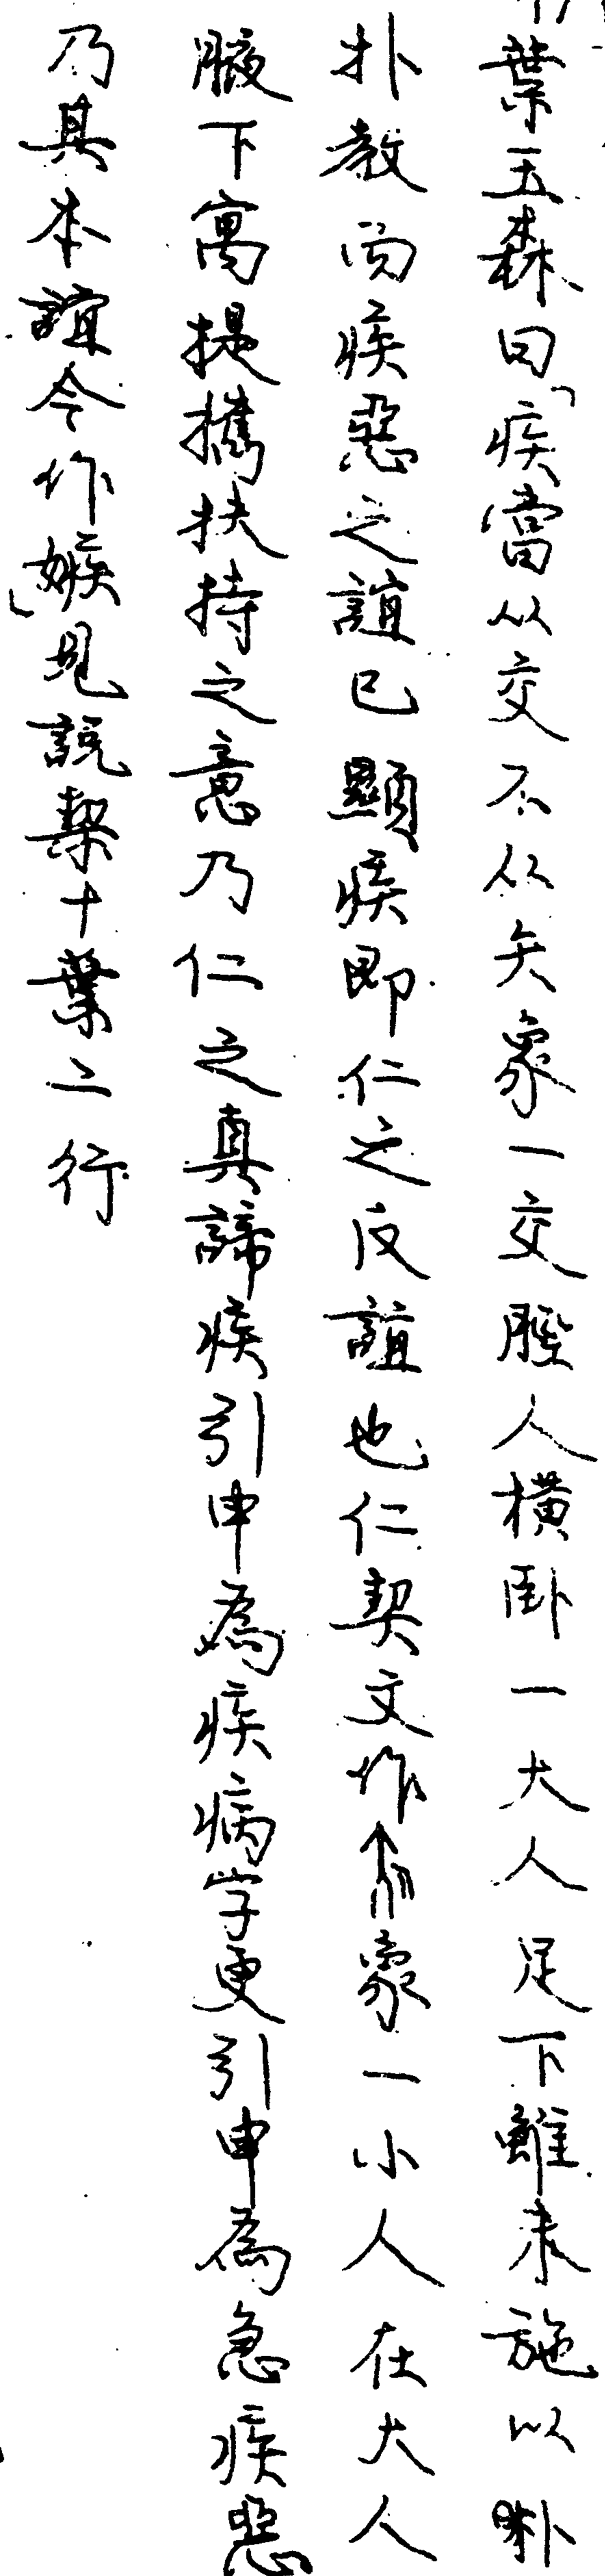 葉玉森曰「疾當从交不从矢象一交脛人橫卧一大人足下雖未施以㪣
扑教而疾惡之誼已顯疾即仁之反誼也仁契文作象一小人在大人
腋下寓提攜扶持之意乃仁之真諦疾引申為疾病字更引申為急疾惡
乃其本誼今作嫉」見說栔十葉二行